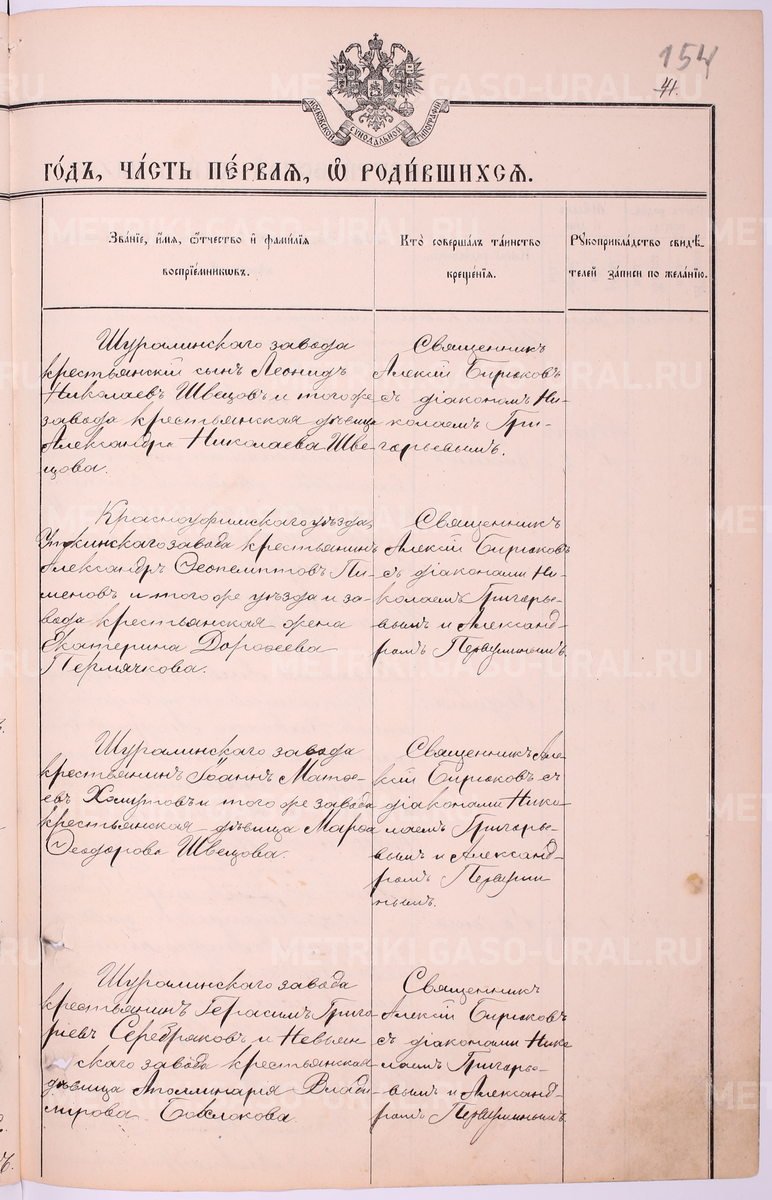 154
41.
МОСКОВСКОЙ СѴНОДАЛЬНОЙ ТИПОГРАФІИ
го́дъ, ча́сть пе́рвая, ѡ҆ роди́вшихся.
Зва́нїе, и҆́мѧ, ѻ҆́тчество и҆ фами́лїѧ
воспрїе́мникѡвъ.
Кто̀ соверша́лъ та́инство
креще́нїѧ.
Рꙋкоприкла́дство свидѣ́-
телей за́писи по жела́нїю.
Шуралинскаго завода
крестьянскій сынъ Леонидъ
Николаевъ Швецовъ и того же
завода крестьянская дѣвица
Александра Николаева Шве-
цова.
Священникъ
Алексій Бирюковъ
съ діакономъ Ни-
колаемъ Гри-
горьевымъ.
Красноуфимскаго уѣзда,
Уткинскаго завода крестьянинъ
Александръ Ѳеопемптовъ Пи-
меновъ и того же уѣзда и за-
вода крестьянская жена
Екатерина Дороѳеева
Пермячкова.
Священникъ
Алексій Бирюковъ
съ діаконами Ни-
колаемъ Григорье-
вымъ и Александ-
ромъ Первушинымъ.
Шуралинскаго завода
крестьянинъ Іоаннъ Матѳе-
евъ Хомутовъ и того же завода
крестьянская дѣвица Марѳа
Ѳеодорова Швецова.
Священникъ Але-
ксій Бирюковъ съ
діаконами Нико-
лаемъ Григорье-
вымъ и Александ-
ромъ Первуши
нымъ.
Шуралинскаго завода
крестьянинъ Герасимъ Григо-
рьевъ Серебряковъ и Невьян-
скаго завода крестьянская
дѣвица Аполлинарія Влади-
мірова
Священникъ
Алексій Бирюковъ
съ діаконами Нико
лаемъ Григорье-
вымъ и Александ-
ромъ Первушинымъ.
METRIKI.GASO-URAL.RU